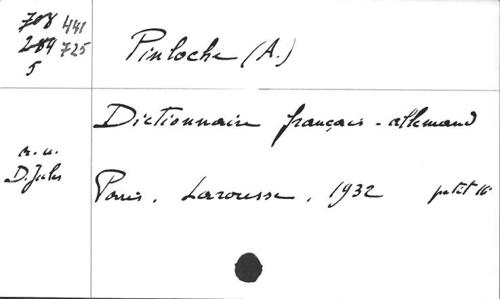 708 441
284 725
5
Pinloche (A.)
Dictionnaire français-allemand
Paris. Larousse. 1932 petit 16°